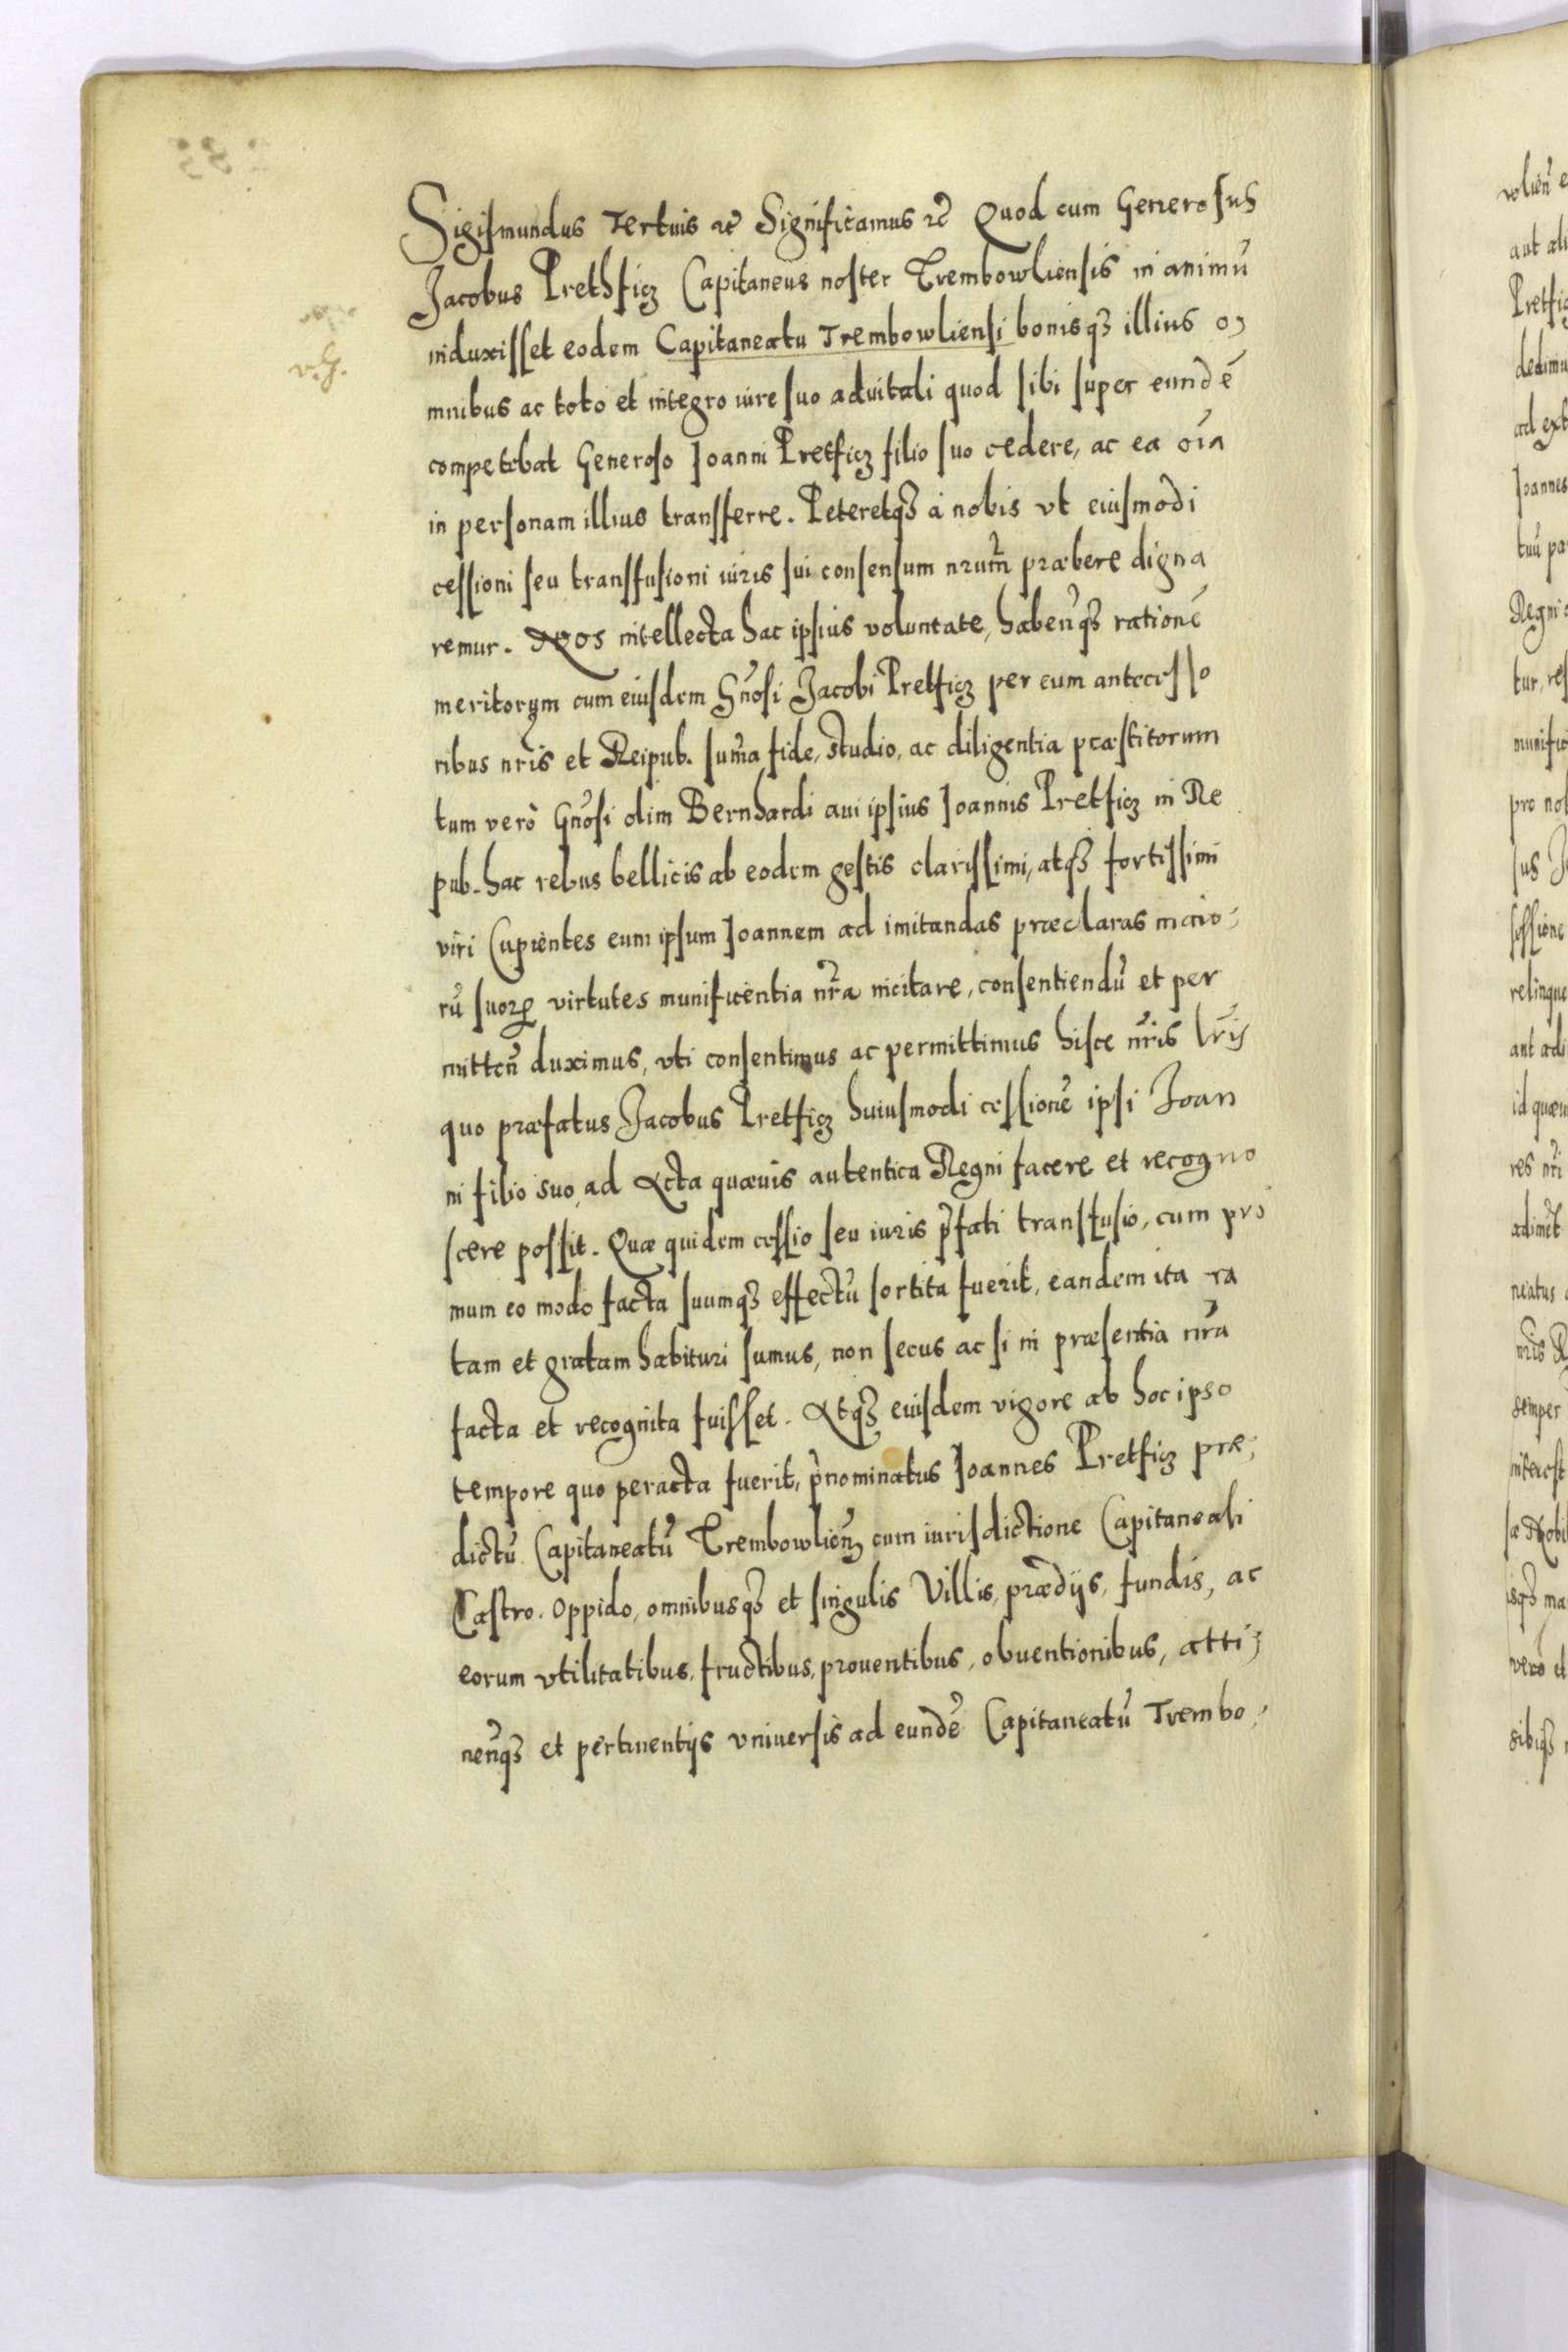 Sigismundus Tertius etc Significamus etc Quod cum Generosus
Jacobus Prethficz Capitaneus noster Trembowliensis in animū
induxisset eodem Capitaneatu Trembowliensi bonisqȝ illius o,
mnibus ac toto et integro iure suo aduitali quod sibi super eundē
competebat Generoso Joanni Pretficz filio suo cedere, ac ea oīa
in personam illius transferre. Peteretqȝ à nobis vt eiusmodi
cessioni seu transfusioni iuris sui consensum nrum̃ præbere digna
remur. Nos intellecta hac ipsius voluntate, haben̄qȝ rationē
meritorum cum eiusdem Gnosi Jacobi Pretficz per eum antecesso
ribus nrīs et Reipub. sum̄a fide, studio, ac diligentia præstitorum
tum verò Gnosi olim Bernhardi aui ipsius Joannis Pretficz in Re
pub. hac rebus bellicis ab eodem gestis clarissimi, atqȝ fortissimi
viri Cupientes eum ipsum Joannem ad imitandas præclaras maio,
rū suorꝝ virtutes munificentia nr̄a incitare, consentiendū et per
mitten̄ duximus, vti consentimus ac permittimus hisce nr̄is lrīs
quo præfatus Jacobus Pretficz huiusmodi cessionē ipsi Joan
ni filio suo, ad Acta quæuis autentica Regni facere et recogno
scere possit. Quæ quidem cessio seu iuris p̄fati transfusio, cum pri
mum eo modo facta suumqȝ effectū sortita fuerit, eandem ita ra
tam et gratam habituri sumus, non secus ac si in præsentia nr̄a
facta et recognita fuisset. Atqȝ eiusdem vigore ab hoc ipso
tempore quo peracta fuerit, p̄nominatus Joannes Pretficz præ,
dictū Capitaneatū Trembowlien̄ cum iurisdictione Capitaneali
Castro, oppido, omnibusqȝ et singulis Villis, prædijs, fundis, ac
eorum vtilitatibus, fructibus, prouentibus, obuentionibus, atti,
nen̄qȝ et pertinentijs vniuersis ad eundē Capitaneatū Trembo,